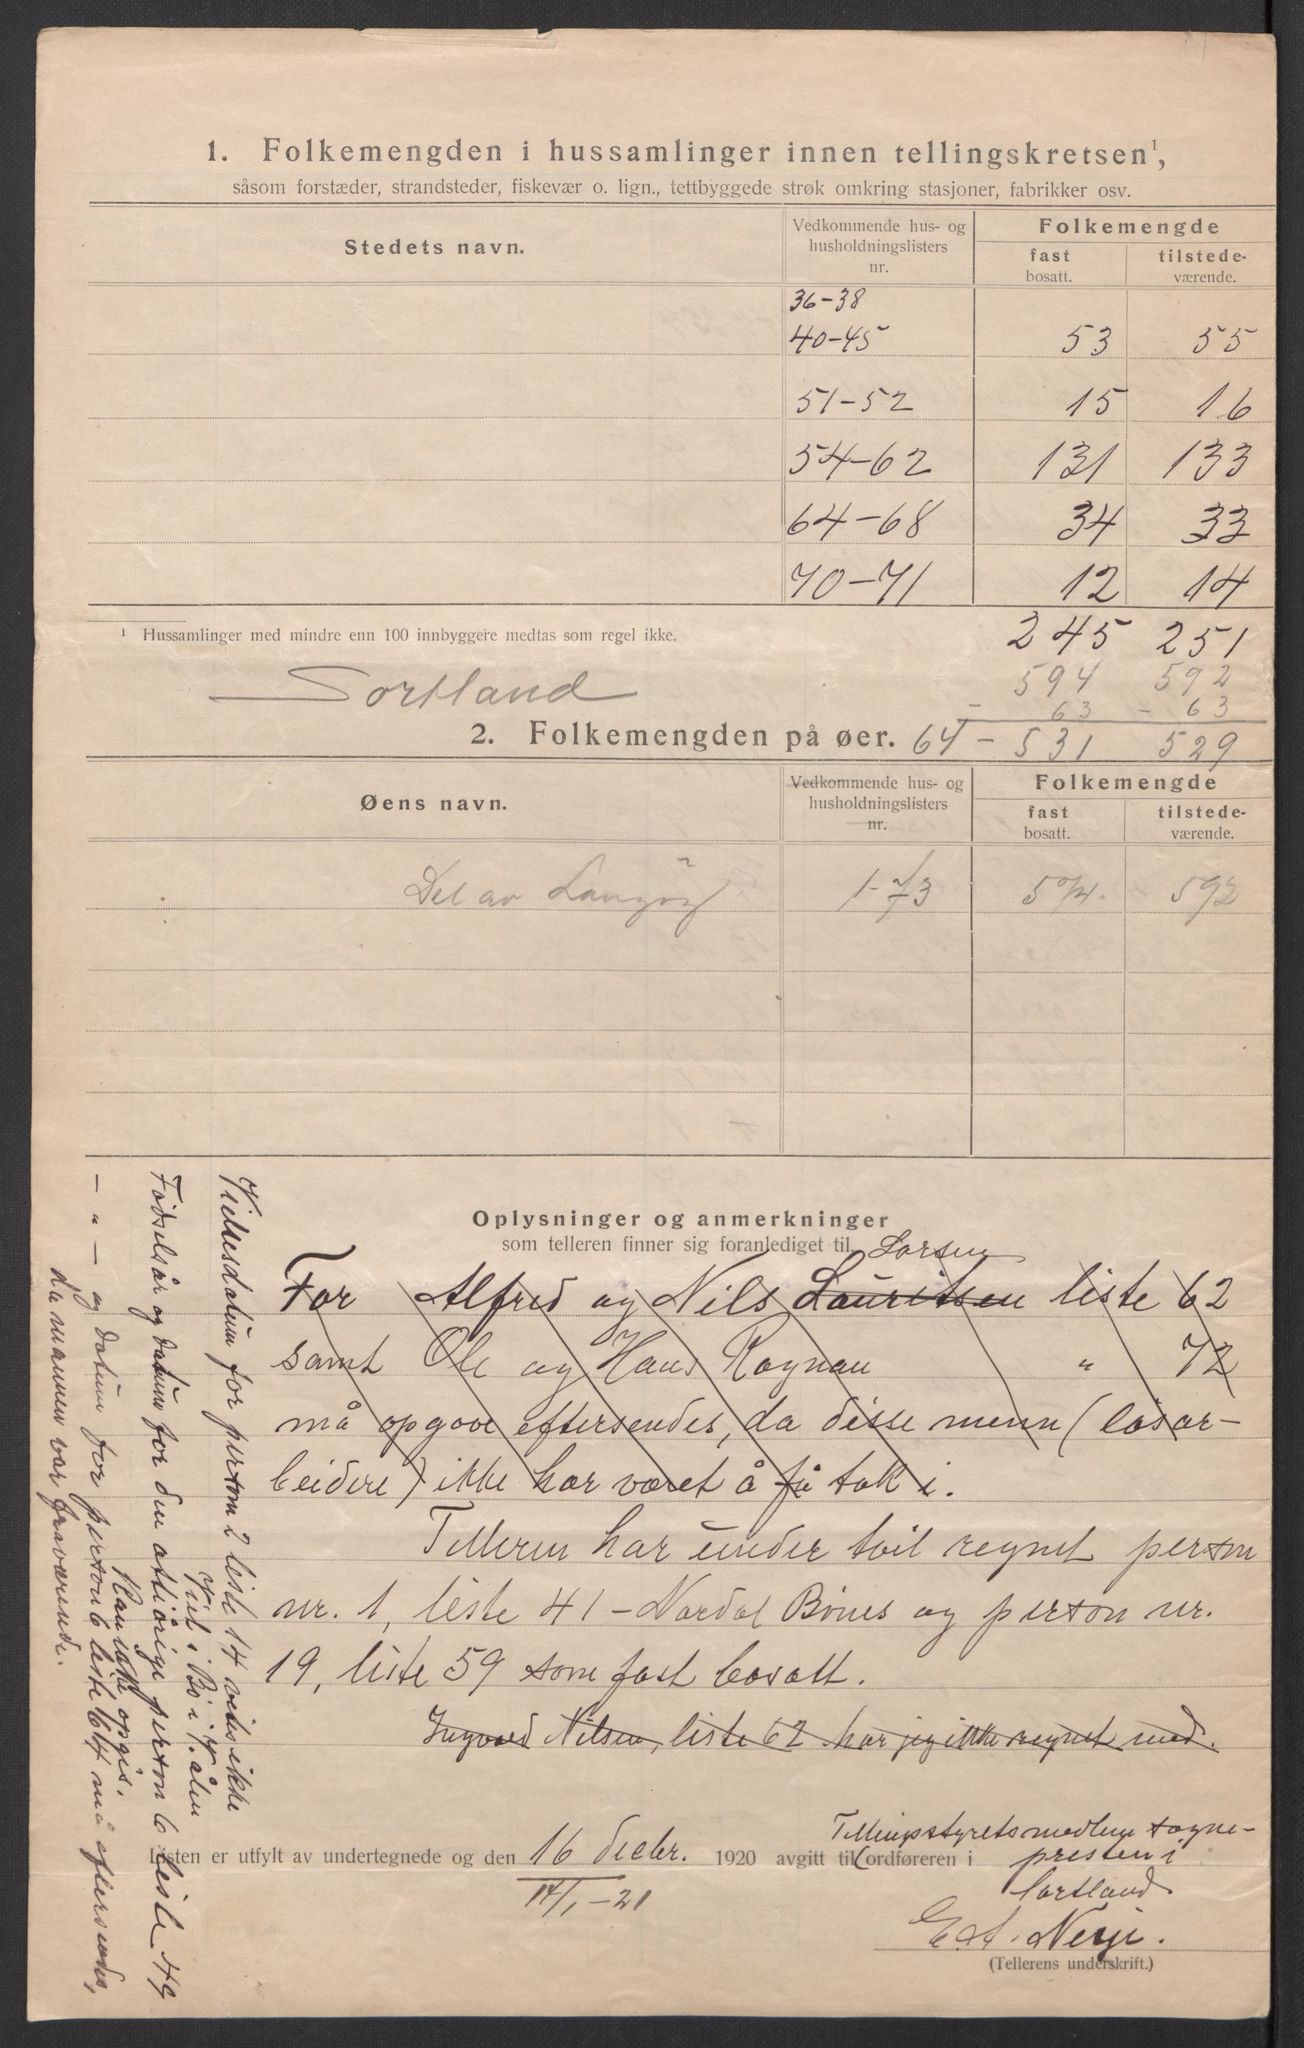 1. Folkemengden i hussamlinger innen tellingskretsen¹,
såsom forstæder, strandsteder, fiskevær o. lign., tettbyggede strøk omkring stasjoner, fabrikker osv.
Stedets navn. Vedkommende hus- og husholdningslisters nr. Folkemengde
fast bosatt. tilstede-værende.
36-38
40-45 53 55
51-52 15 16
54-62 131 133
64-68 34 33
70-71 12 14
¹ Hussamlinger med mindre enn 100 innbyggere medtas som regel ikke. 245 251
Sortland 594 592
- 63 - 63
2. Folkemengden på øer. 64 - 531 529
Øens navn. Vedkommende hus- og husholdningslisters nr. Folkemengde
fast bosatt. tilstede-værende.
Del av Langöy 1-73 594. 592
Oplysninger og anmerkninger
som telleren finner sig foranlediget til.
Larsen
For Alfred og Nils Lauritsen liste 62
samt Ole og Hans Rognan " 72
må opgave eftersendes, da disse menn (løsar-
beidere) ikke har været å få tak i.
Telleren har under tvil regnet person
nr. 1, liste 41 - Nordal Bönes og person nr.
19, liste 59 som fast bosatt.
Ingvald Nilsen, liste 62 har jeg ikke regnet med.
Listen er utfylt av undertegnede og den 16 decbr. 1920 avgitt til ordføreren i
Tellingsstyrets medlem sogne-
presten i
Sortland
14/1-21
E. A. Nerje.
(Tellerens underskrift.)
Vielsesdatum for person 2 liste 14 vites ikke
Viet i Bö i V.ålen
Födselsår og datum for den attiårige person 6 liste 49
Kan ikke opgis.
- " - og datum for person 6 liste 64 må eftersendes,
da mannen var fraværende.